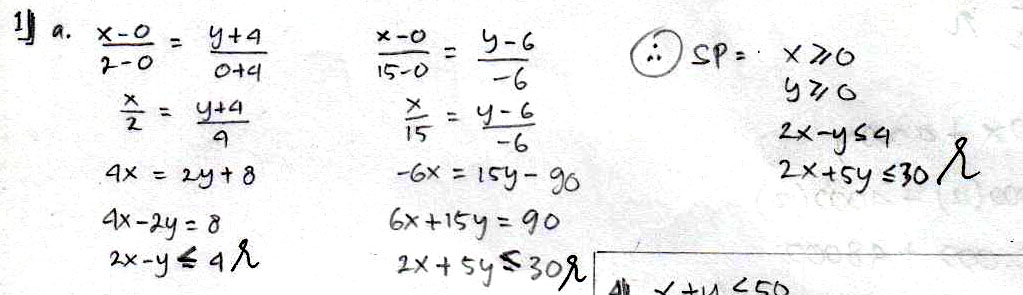 1) a. x-0/2-0 = y+4/0+4
x/2 = y+4/4
4x = 2y+8
4x-2y = 8
2x-y ≤ 4
x-0/15-0 = y-6/-6
x/15 = y-6/-6
-6x = 15y-90
6x+15y = 90
2x+5y ≤ 30
∴ SP = x ≥ 0
y ≥ 0
2x-y ≤ 4
2x+5y ≤ 30
x+y ≤ 50